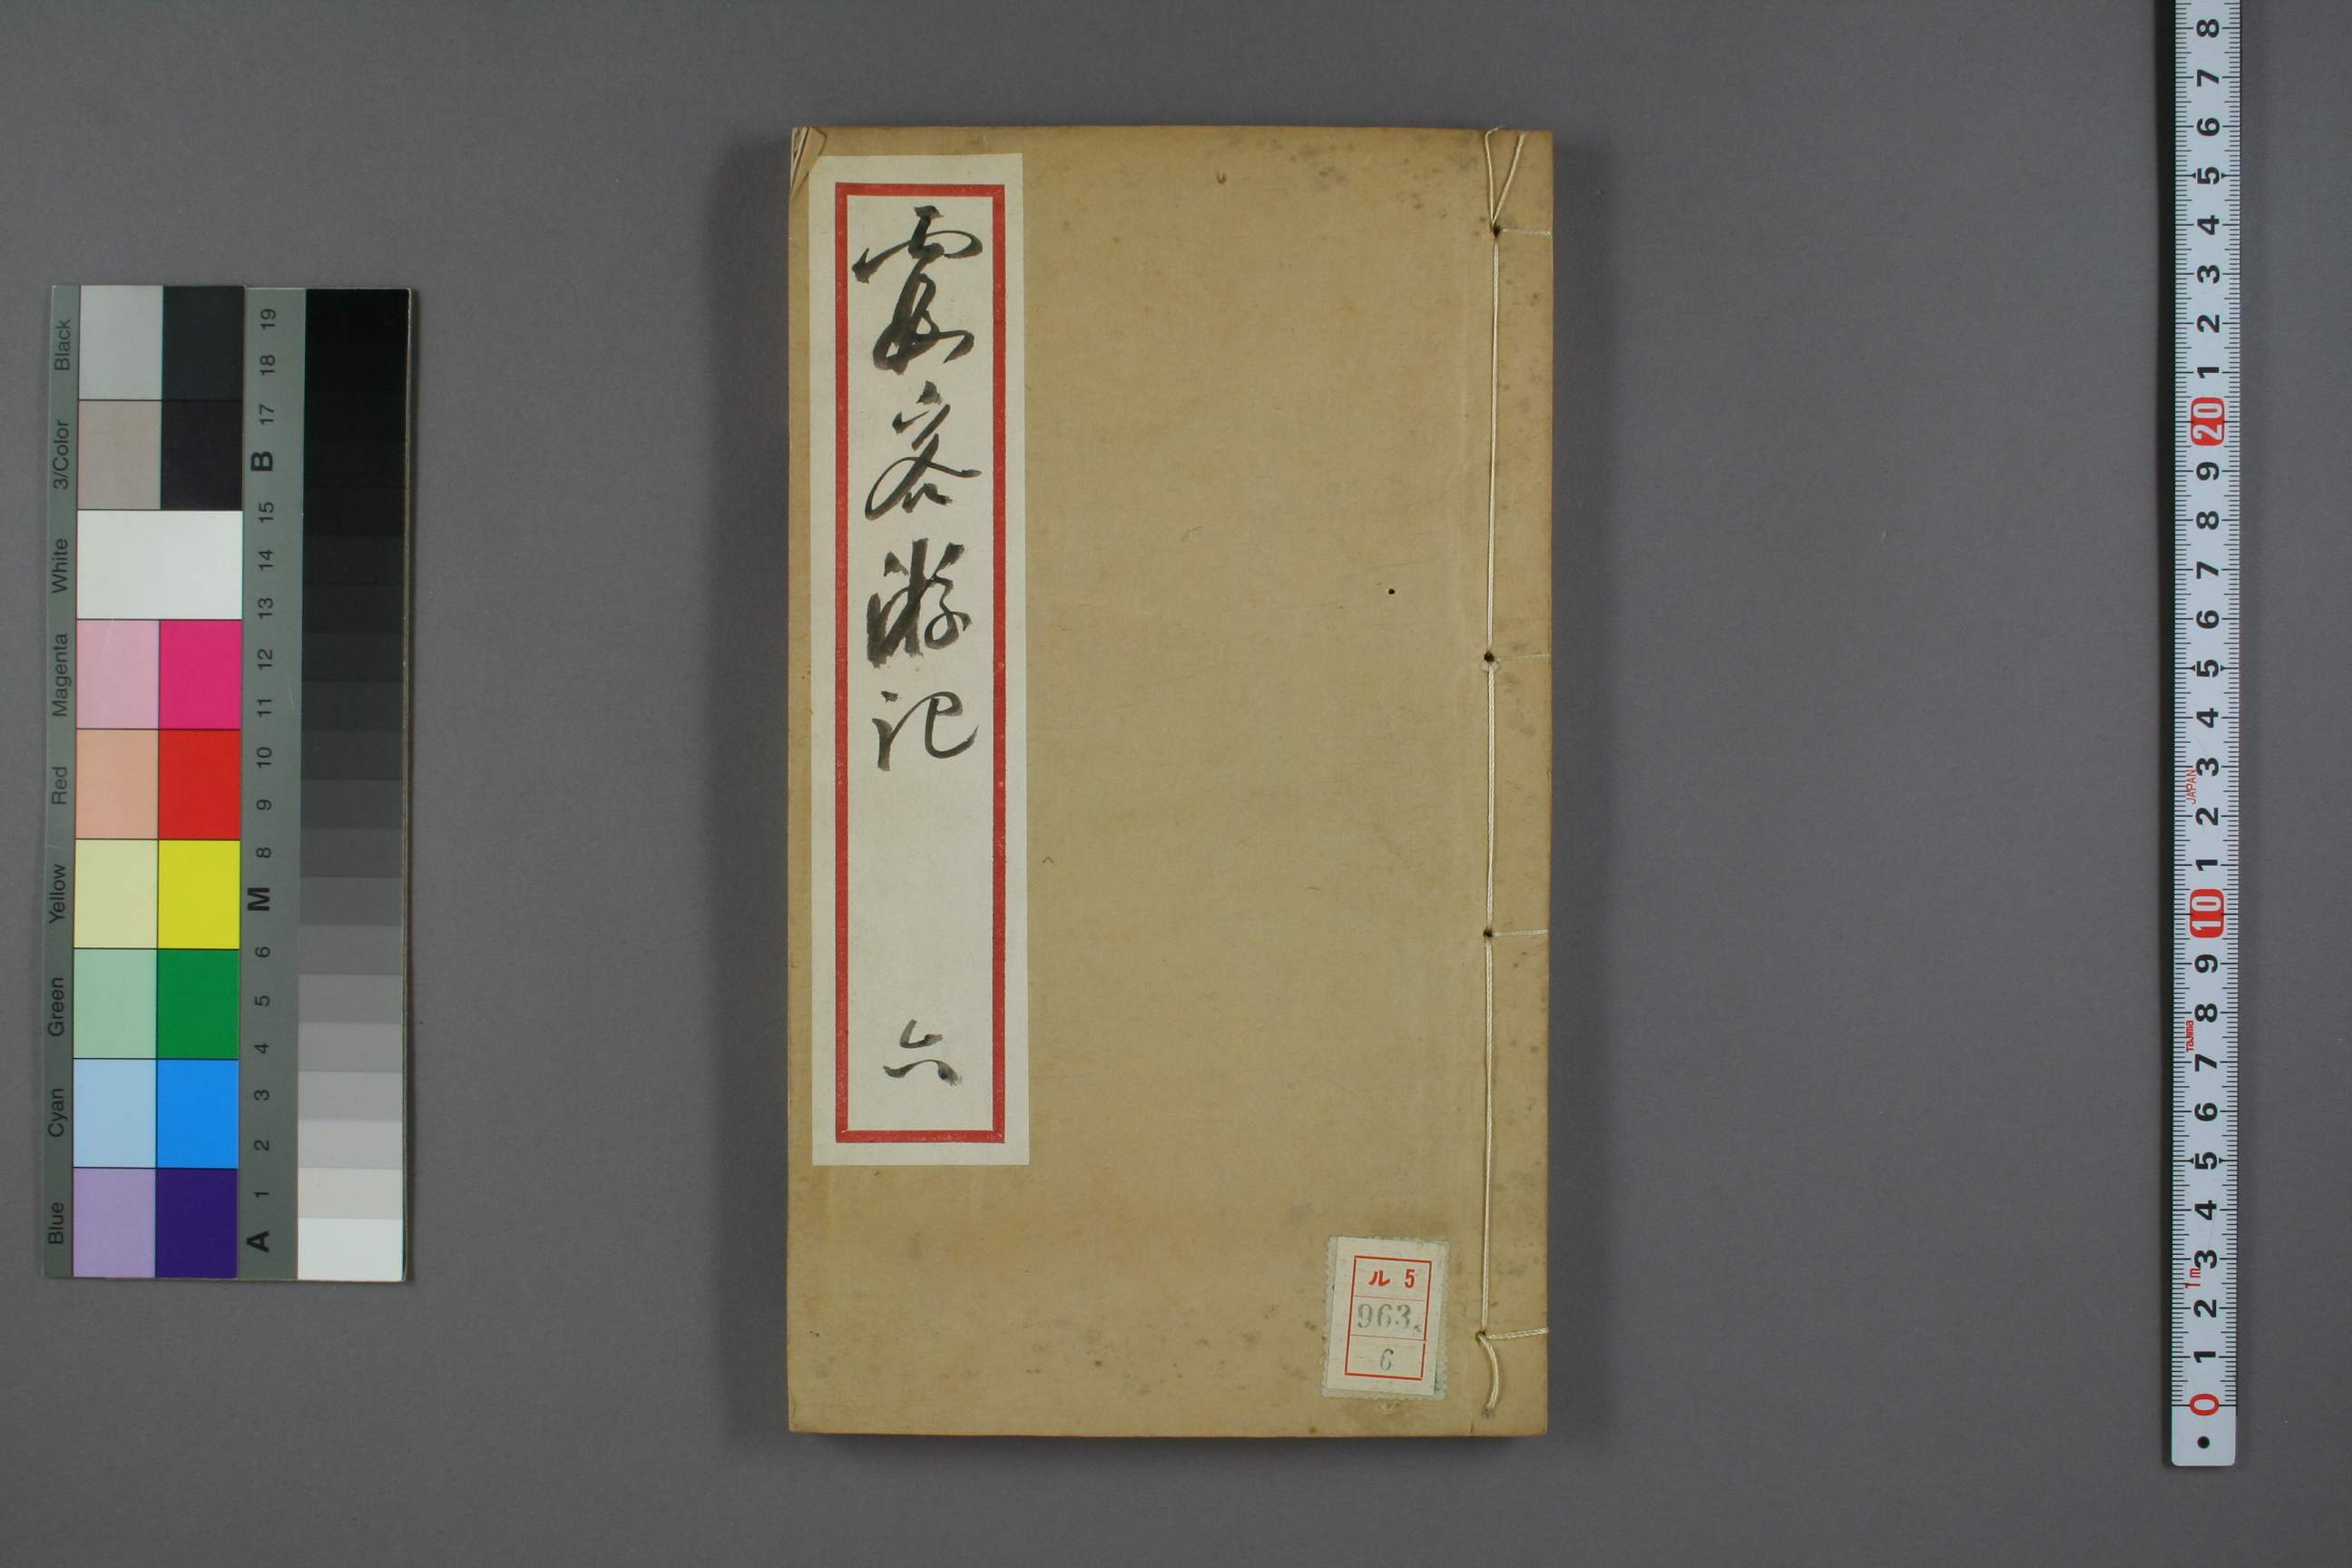 霞客游记
六
ル 5
963.
6
Black
3/Color
White
Magenta
Red
Yellow
Green
Cyan
Blue
19
18
17
B
15
14
13
12
11
10
9
8
M
6
5
4
3
2
1
A
8
7
6
5
4
3
2
1
20
9
8
7
6
5
4
3
JAPAN
2
1
10
9
8
Tajima
7
6
5
4
3
1m
2
1
0